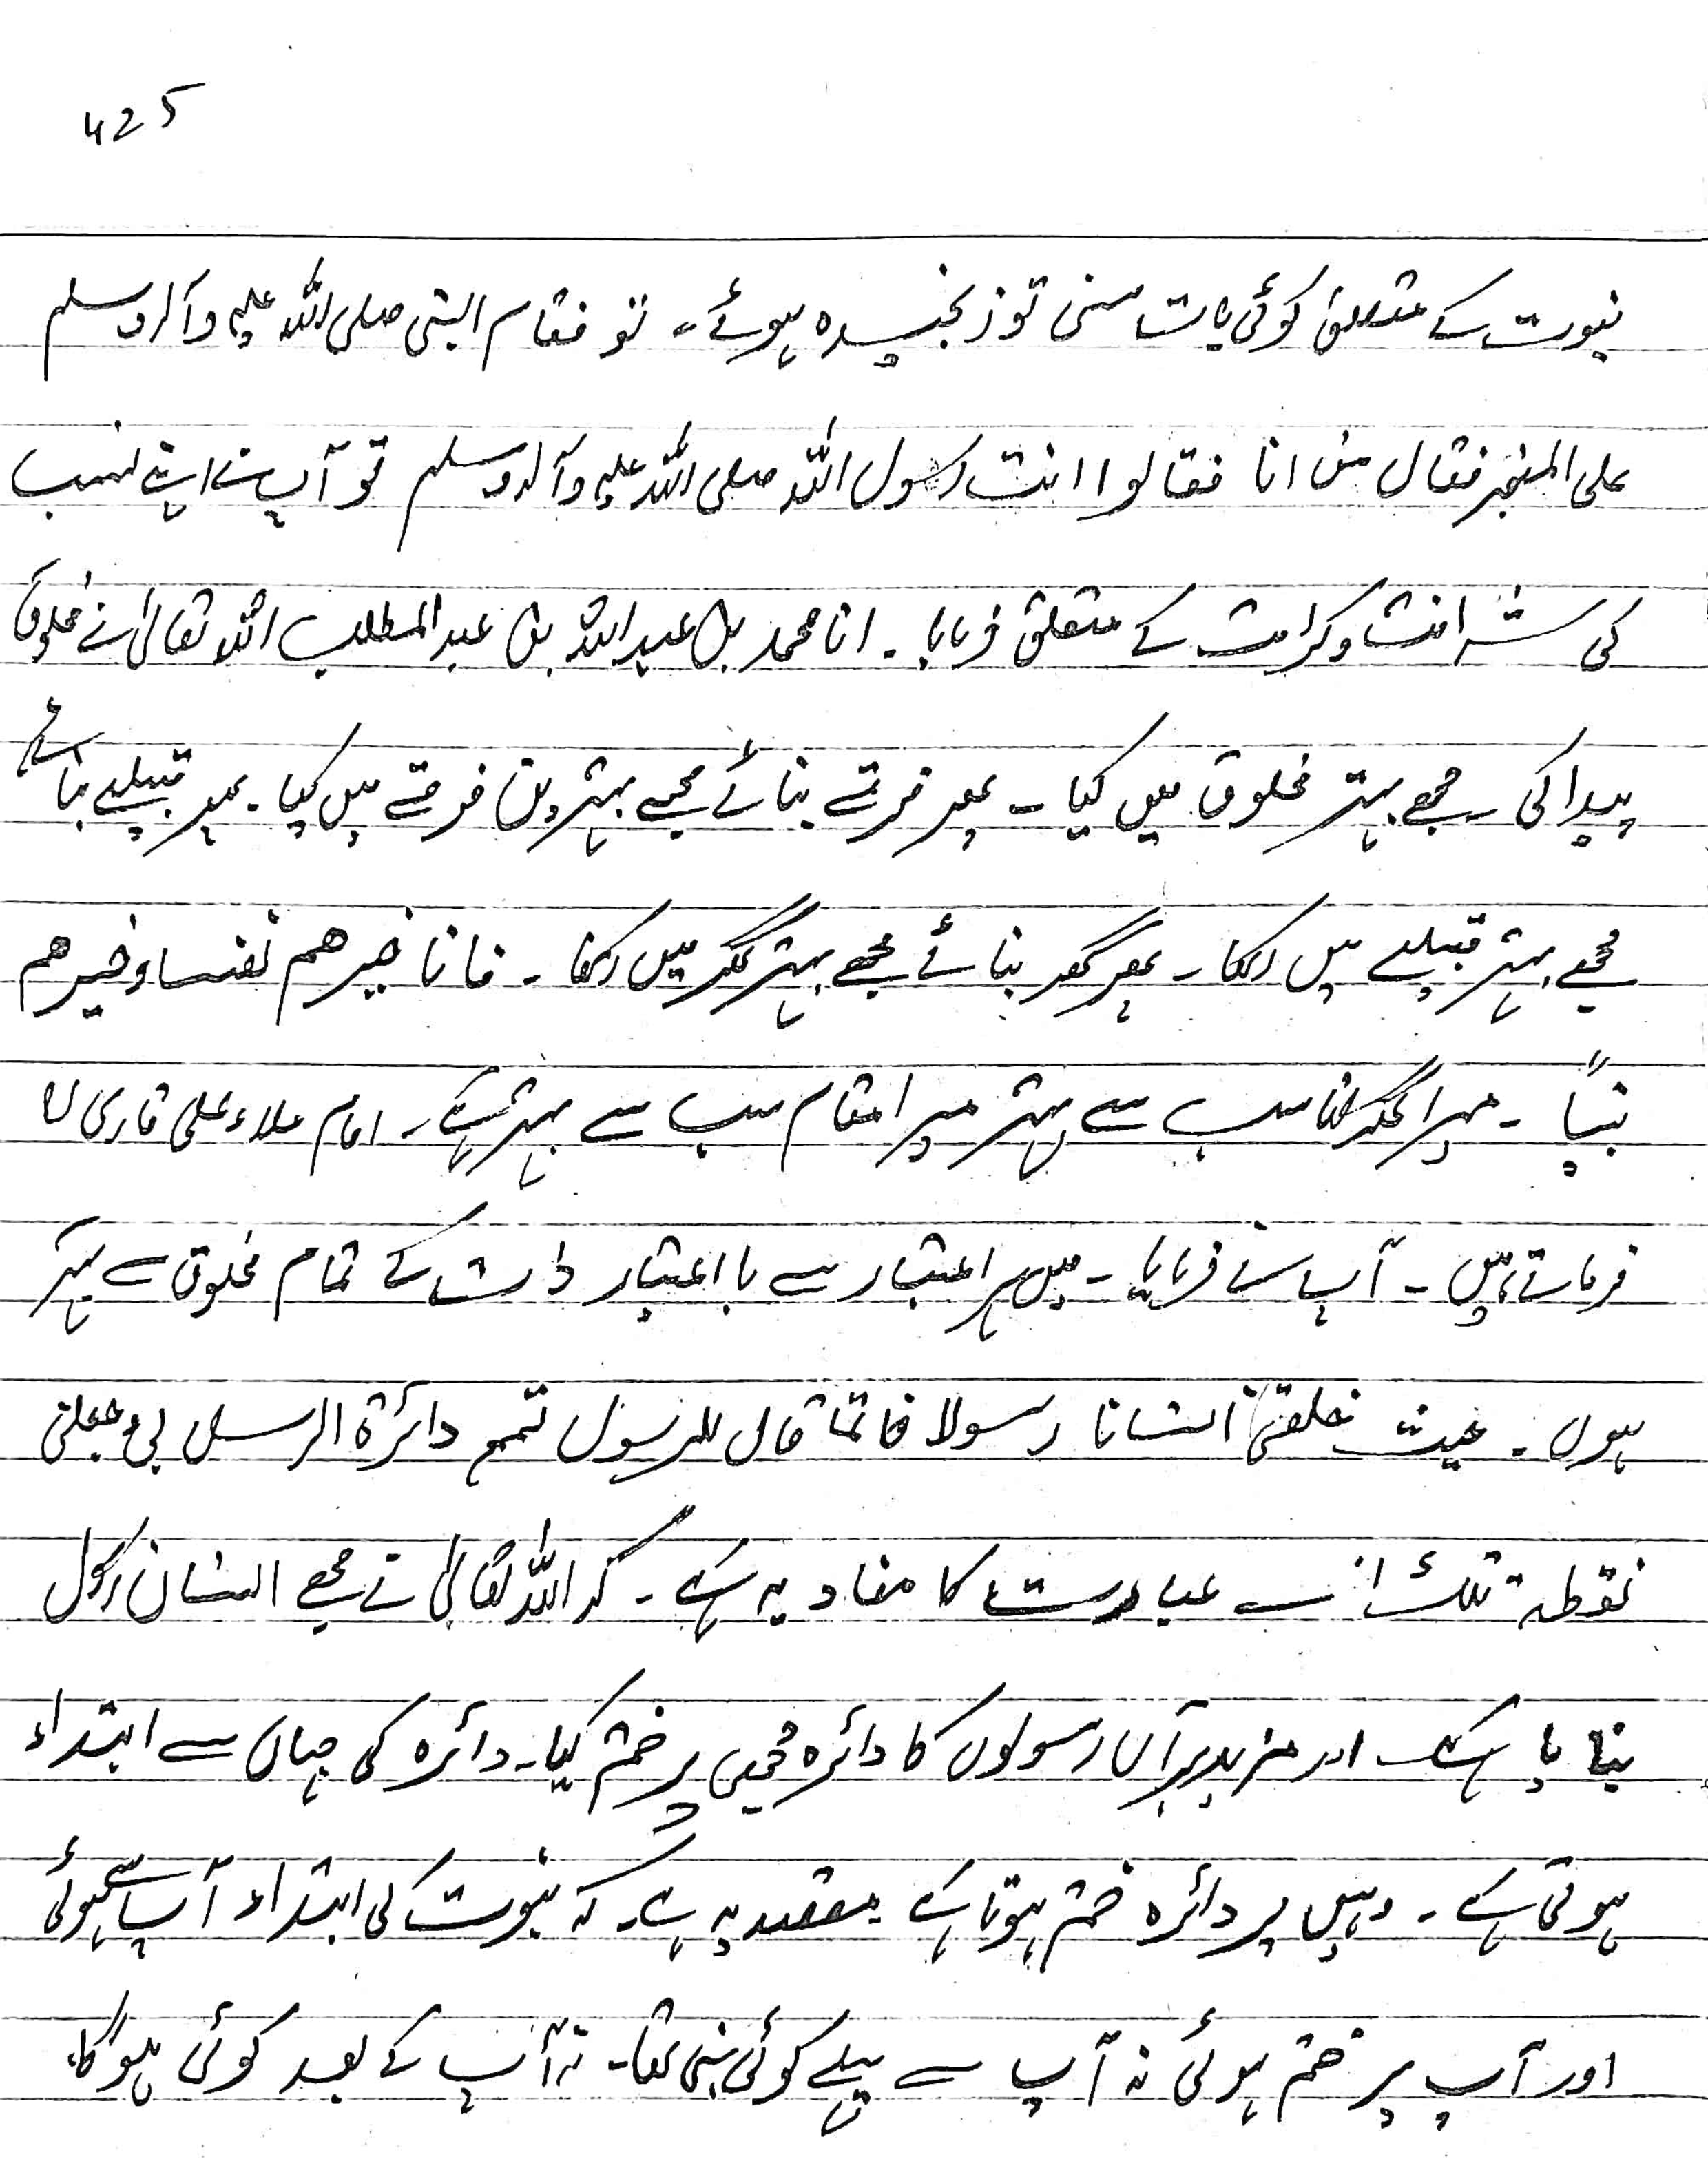 425
نبوت کے متعلق کوئی بات سنی تو رنجیدہ ہوئے۔ تو فقام النبی صلی اللہ علیہ وآلہ وسلم
علی المنبر فقال من انا فقالوا انت رسول اللہ صلی اللہ علیہ وآلہ وسلم تو آپ نے اپنے نسب
کی شرافت و کرامت کے متعلق فرمایا۔ انا محمد بن عبد اللہ بن عبد المطلب اللہ تعالیٰ نے مخلوق
پیدا کی مجھے بہتر مخلوق میں کیا۔ پھر فرقے بنائے مجھے بہترین فرقے میں کیا۔ پھر قبیلے بنائے
مجھے بہتر قبیلے میں رکھا۔ پھر گھر بنائے مجھے بہتر گھر میں رکھا۔ فانا خیرھم نفسا وخیرھم
بیتاً۔ میرا گھرانا سب سے بہتر میرا مقام سب سے بہتر ہے۔ امام ملاء علی قاری
فرماتے ہیں۔ آپ نے فرمایا۔ میں ہر اعتبار سے با اعتبار ذات کے تمام مخلوق سے بہتر
ہوں۔ حیث خلقنی انسانا رسولا خاتما قال للرسول تتمم دائرۃ الرسل بی وجعلنی
نقطۃ تلک اس عبارت کا مفاد یہ ہے۔ کہ اللہ تعالیٰ نے مجھے انسان رسول
بنایا ہے اور مزید برآں رسولوں کا دائرہ مجھی پر ختم کیا۔ دائرہ کی جہاں سے ابتداء
ہوتی ہے۔ وہیں پر دائرہ ختم ہوتا ہے مقصد یہ ہے۔ کہ نبوت کی ابتداء آپ سے ہوئی
اور آپ پر ختم ہوئی نہ آپ سے پہلے کوئی نبی تھا۔ نہ آپ کے بعد کوئی ہوگا،